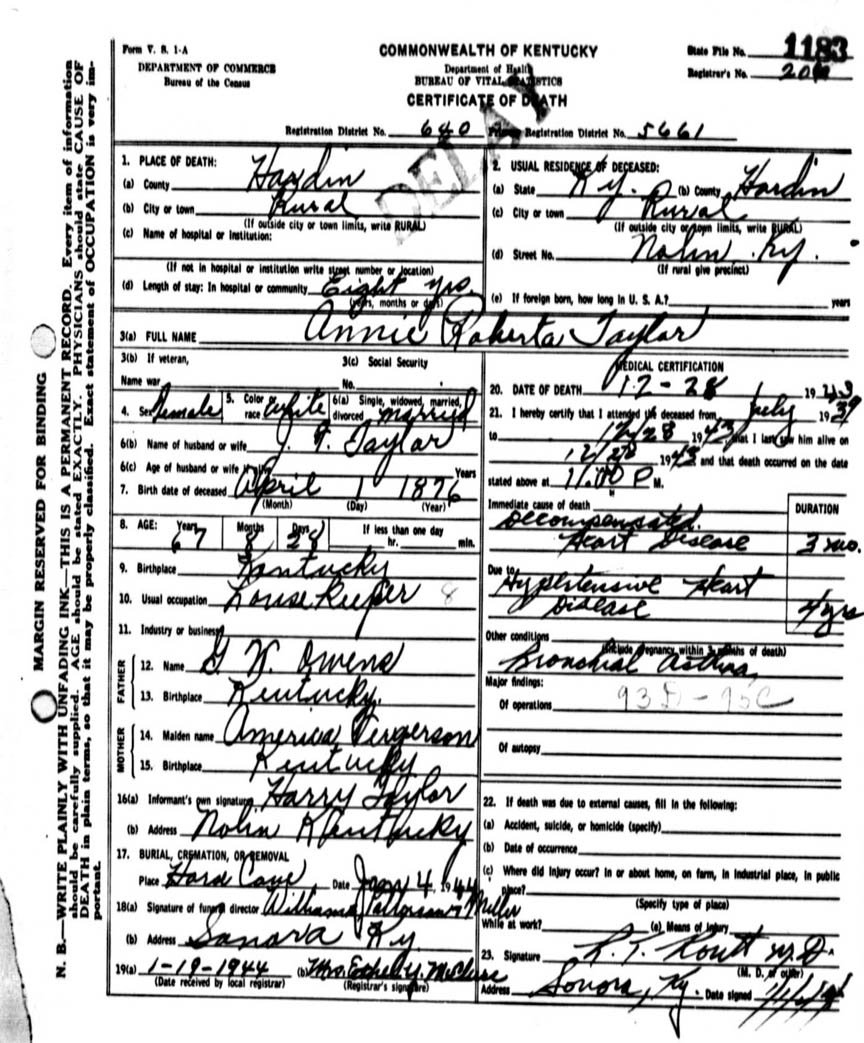 Form V. S. 1-A
DEPARTMENT OF COMMERCE
Bureau of the Census
COMMONWEALTH OF KENTUCKY
Department of Health
BUREAU OF VITAL STATISTICS
CERTIFICATE OF DEATH
State File No. 1183
Registrar's No.
DELAY
Registration District No. 640 Primary Registration District No. 5661
1. PLACE OF DEATH:
(a) County Hardin
(b) City or town Rural
(If outside city or town limits, write RURAL)
(c) Name of hospital or Institution:
(If not in hospital or institution write street number or location)
(d) Length of stay: In hospital or community Eight yrs.
(years, months or days)
2. USUAL RESIDENCE OF DECEASED:
(a) State Ky. (b) County Hardin
(c) City or town Rural
(If outside city or town limits, write RURAL)
(d) Street No. Nolin Ky.
(If rural give precinct)
(e) If foreign born, how long in U. S. A.? years
3(a) FULL NAME Annie Roberta Taylor
3(b) If veteran,
Name war
3(c) Social Security
No.
4. Sex Female 5. Color race White 6(a) Single, widowed, married, divorced married
6(b) Name of husband or wife J. T. Taylor
6(c) Age of husband or wife if alive Years
7. Birth date of deceased April 1 1876
(Month) (Day) (Year)
8. AGE: Years Months Days If less than one day
67 8 28 hr. min.
9. Birthplace Kentucky
10. Usual occupation House Keeper 8
11. Industry or business
FATHER
12. Name G W. Owens
13. Birthplace Kentucky.
MOTHER
14. Maiden name America
15. Birthplace Kentucky
16(a) Informant's own signature Harry Taylor
(b) Address Nolin Kentucky
17. BURIAL, CREMATION, OR REMOVAL
Place Date Jany 4, 1944
18(a) Signature of funeral director Williams Patterson & Miller
(b) Address Sonora Ky
19(a) 1-19-1944 (b) Mrs. Ethel Y. McClure
(Date received by local registrar) (Registrar's signature)
MEDICAL CERTIFICATION
20. DATE OF DEATH 12-28 1943
21. I hereby certify that I attended the deceased from July 1939
to 12/28 1943, that I last saw him alive on
12/28 1943 and that death occurred on the date
stated above at 11:00 P M.
Immediate cause of death DURATION
Decompensated
Heart Disease 3 mo.
Due to
Hypertensive Heart
Disease 4 yrs
Other conditions
(Include pregnancy within 3 months of death)
Bronchial Asthma
Major findings:
Of operations 93D-95C
Of autopsy
22. If death was due to external causes, fill in the following:
(a) Accident, suicide, or homicide (specify)
(b) Date of occurrence
(c) Where did injury occur? In or about home, on farm, in industrial place, in public
place?
(Specify type of place)
While at work? (e) Means of Injury
23. Signature R. T. Routt M.D.
(M. D. or other)
Address Sonora, Ky. Date signed
MARGIN RESERVED FOR BINDING
N. B.—WRITE PLAINLY WITH UNFADING INK—THIS IS A PERMANENT RECORD. Every item of information
should be carefully supplied. AGE should be stated EXACTLY. PHYSICIANS should state CAUSE OF
DEATH in plain terms, so that it may be properly classified. Exact statement of OCCUPATION is very im-
portant.